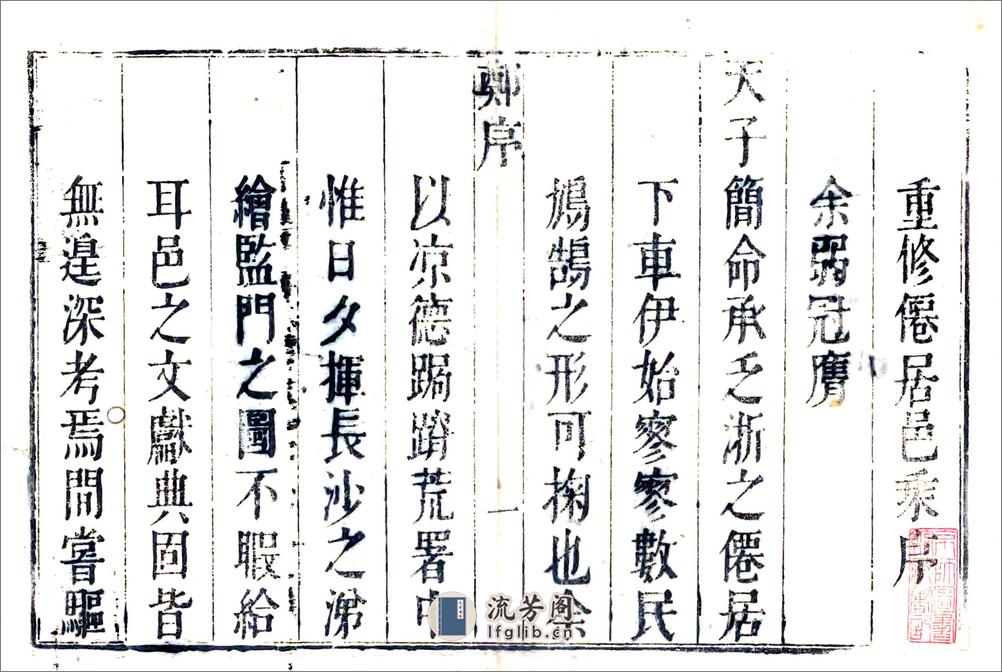 重修僊居邑乘序
余弱冠膺
天子簡命承乏浙之僊居
下車伊始寥寥數民
鳩鵠之形可掬也余
鄭序
一
以凉德跼蹐荒署中
惟日夕揮長沙之涕
繪監門之圖不暇給
耳邑之文獻典固皆
無遑深考焉間嘗驅
流芳阁
lfglib.cn